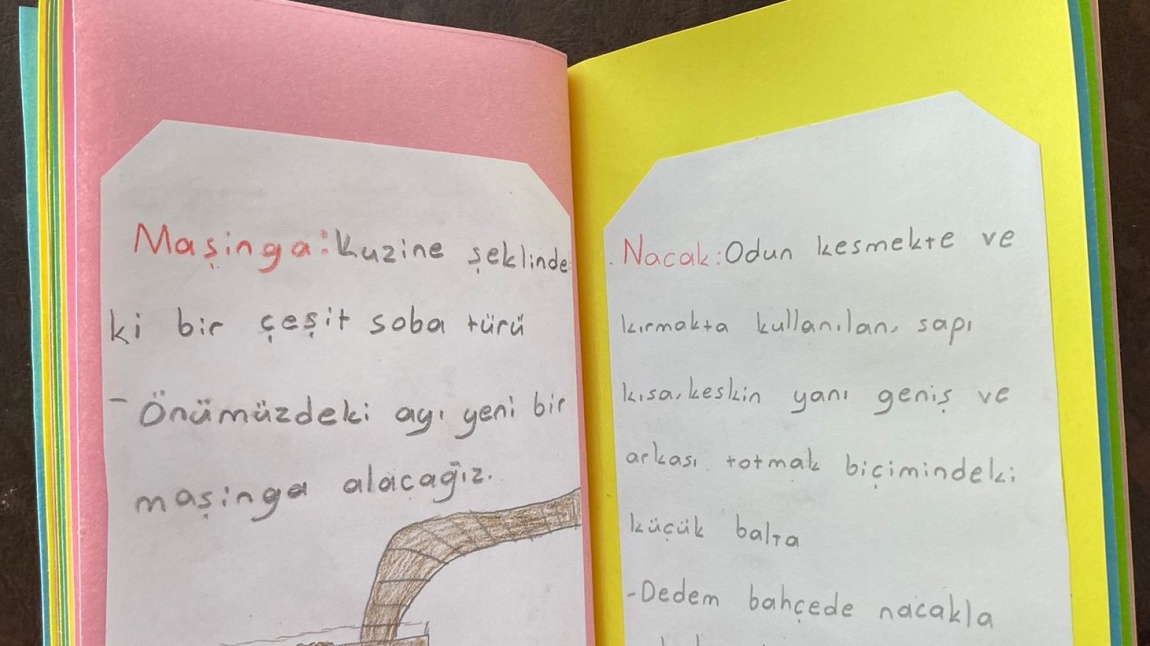 Maşinga: Kuzine şeklinde
ki bir çeşit soba türü
- Önümüzdeki ayı yeni bir
maşinga alacağız.
Nacak: Odun kesmekte ve
kırmakta kullanılan, sapı
kısa, keskin yanı geniş ve
arkası totmak biçimindeki
küçük balta
-Dedem bahçede nacakla